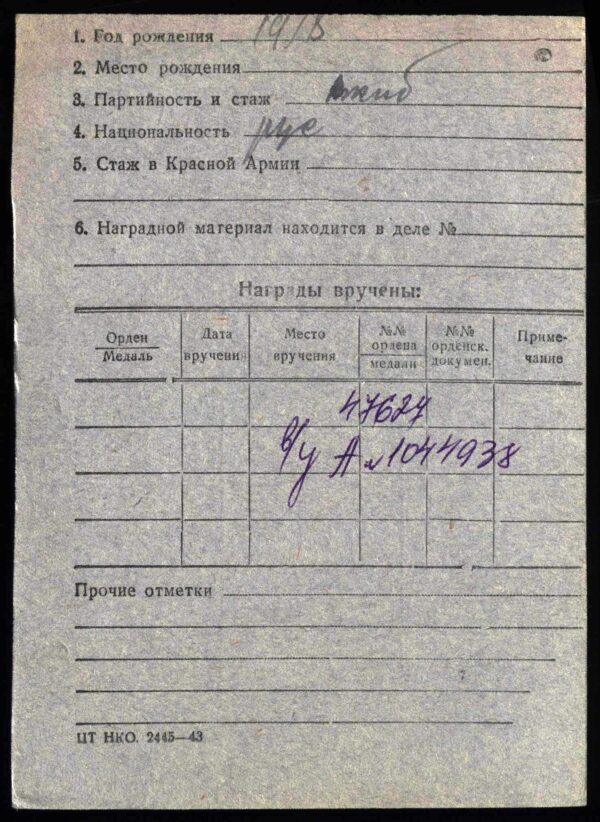 1. Год рождения 1918
2. Место рождения
3. Партийность и стаж
4. Национальность рус
5. Стаж в Красной Армии
6. Наградной материал находится в деле №
Награды вручены:
Орден
Медаль
Дата
вручения
Место
вручения
№№
ордена
медали
№№
орденск.
докумен.
Приме-
чание
47627
в/у А № 1044938
Прочие отметки
ЦТ НКО. 2445—43